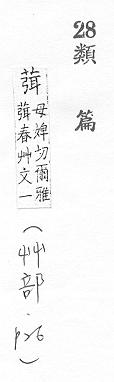 28
類篇
葞
母婢切爾雅
葞春艸文一
（艸部・p26）